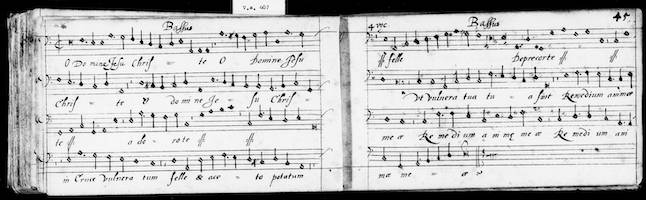 Bassus
O Domine Jesu Chris = te O Domine Jesu
Chris = te O do mi ne Je = su Chris =
te a do ro te
in Cruce vulnera tum felle & ace = to potatum
4 voc. Bassus 45
felle Deprecor te
Vt vulnera tua tu = a sint Remedium animæ
me æ Re me di um a ni mę me æ Re medi um ani
mæ me = æ